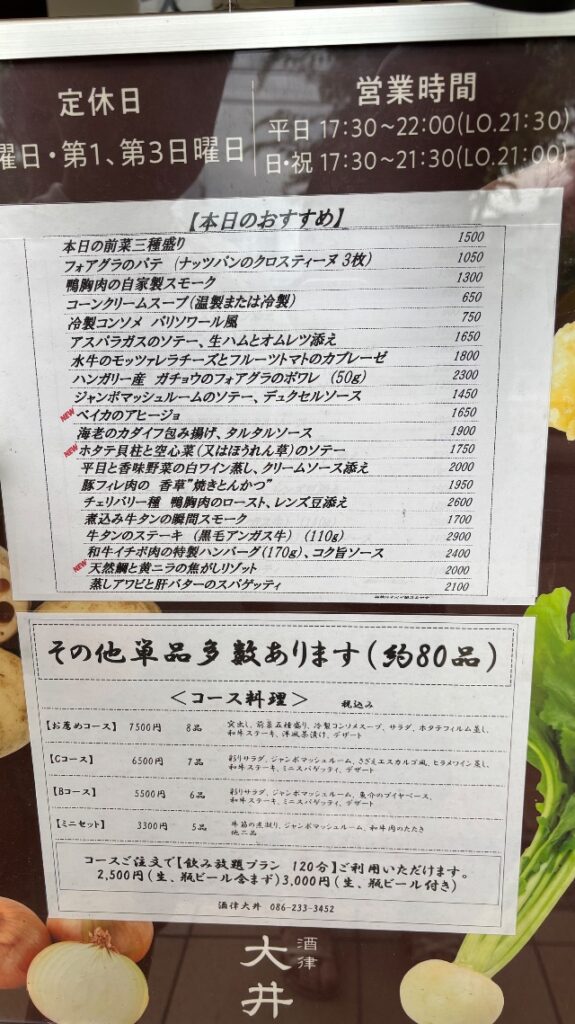 定休日
曜日・第1、第3日曜日
営業時間
平日 17:30～22:00(LO.21:30)
日・祝 17:30～21:30(LO.21:00)
【本日のおすすめ】
本日の前菜三種盛り 1500
フォアグラのパテ (ナッツパンのクロスティーヌ 3枚) 1050
鴨胸肉の自家製スモーク 1300
コーンクリームスープ(温製または冷製) 650
冷製コンソメ パリソワール風 750
アスパラガスのソテー、生ハムとオムレツ添え 1650
水牛のモッツァレラチーズとフルーツトマトのカプレーゼ 1800
ハンガリー産 ガチョウのフォアグラのポワレ (50g) 2300
ジャンボマッシュルームのソテー、デュクセルソース 1450
NEW ベイカのアヒージョ 1650
海老のカダイフ包み揚げ、タルタルソース 1900
NEW ホタテ貝柱と空心菜(又はほうれん草)のソテー 1750
平目と香味野菜の白ワイン蒸し、クリームソース添え 2000
豚フィレ肉の 香草"焼きとんかつ" 1950
チェリバリー種 鴨胸肉のロースト、レンズ豆添え 2600
煮込み牛タンの瞬間スモーク 1700
牛タンのステーキ (黒毛アンガス牛) (110g) 2900
和牛イチボ肉の特製ハンバーグ(170g)、コク旨ソース 2400
NEW 天然鯛と黄ニラの焦がしリゾット 2000
蒸しアワビと肝バターのスパゲッティ 2100
その他単品多数あります(約80品)
＜コース料理＞ 税込み
【お薦めコース】 7500円 8品 突出し、前菜五種盛り、冷製コンソメスープ、サラダ、ホタテフィルム蒸し、
和牛ステーキ、洋風茶漬け、デザート
【Cコース】 6500円 7品 彩りサラダ、ジャンボマッシュルーム、さざえエスカルゴ風、ヒラメワイン蒸し、
和牛ステーキ、ミニスパゲッティ、デザート
【Bコース】 5500円 6品 彩りサラダ、ジャンボマッシュルーム、魚介のブイヤベース、
和牛ステーキ、ミニスパゲッティ、デザート
【ミニセット】 3300円 5品 牛筋の煮凝り、ジャンボマッシュルーム、和牛肉のたたき
他二品
コースご注文で【飲み放題プラン 120分】ご利用いただけます。
2,500円(生、瓶ビール含まず)3,000円(生、瓶ビール付き)
酒律大井 086-233-3452
酒律
大井